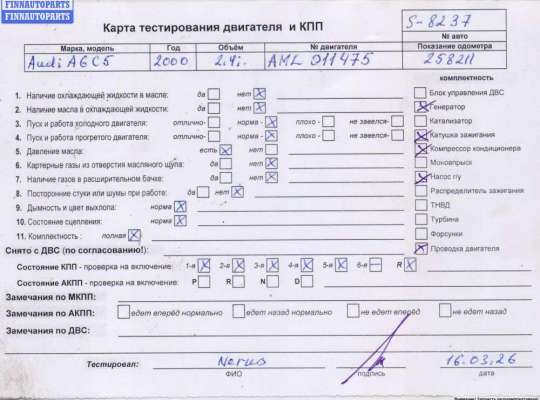 FINNAUTOPARTS
FINNAUTOPARTS
Карта тестирования двигателя и КПП
S-8237
№ авто
Марка, модель Год Объём № двигателя Показание одометра
Audi A6C5 2000 2.4i. AML 011475 258211
комплектность
1. Наличие охлаждающей жидкости в масле: да нет X
2. Наличие масла в охлаждающей жидкости: да нет X
3. Пуск и работа холодного двигателя: отлично- норма - X плохо - не завелся-
4. Пуск и работа прогретого двигателя: отлично- норма - X плохо - не завелся-
5. Давление масла: есть X нет
6. Картерные газы из отверстия масляного щупа: да нет X
7. Наличие газов в расширительном бачке: да нет X
8. Посторонние стуки или шумы при работе: да нет X
9. Дымность и цвет выхлопа: норма X
10. Состояние сцепления: норма X
11. Комплектность : полная X
Блок управления ДВС
X Генератор
Катализатор
X Катушка зажигания
X Компрессор кондиционера
Моновпрыск
X Насос г/у
Распределитель зажигания
ТНВД
Турбина
Форсунки
X Проводка двигателя
Снято с ДВС (по согласованию!):
Состояние КПП - проверка на включение: 1-я X 2-я X 3-я X 4-я X 5-я X 6-я — R X
Состояние АКПП - проверка на включение: P R N D
Замечания по МКПП:
Замечания по АКПП: едет вперёд нормально едет назад нормально не едет вперёд не едет назад
Замечания по ДВС:
Тестировал: 16.03.26
ФИО подпись дата